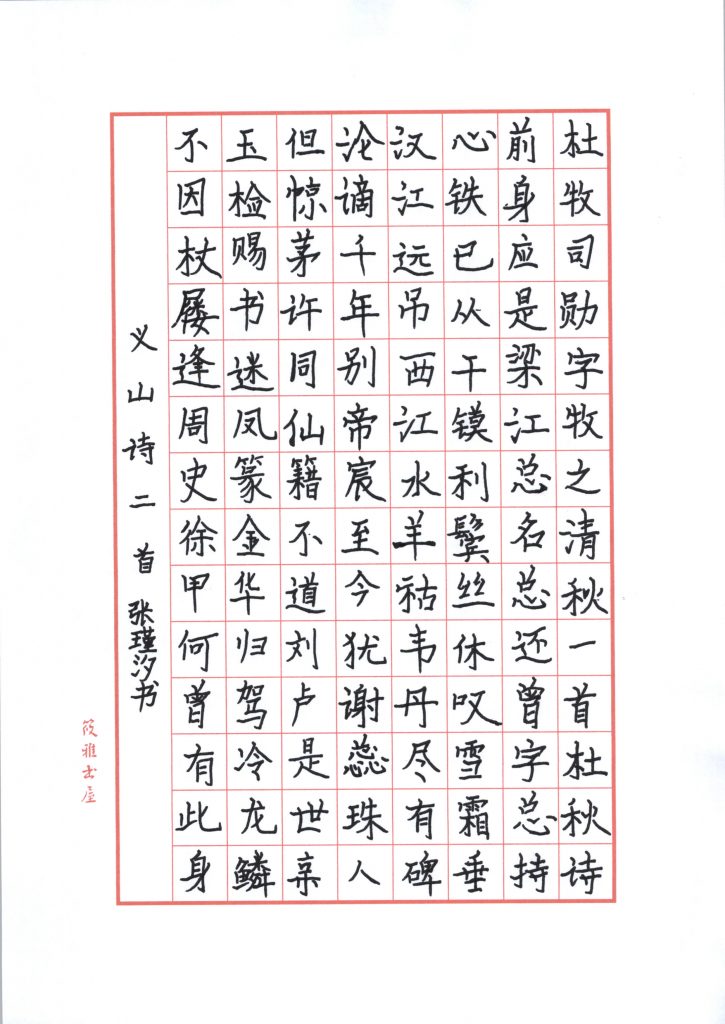 杜牧司勋字牧之清秋一首杜秋诗
前身应是梁江总名总还曾字总持
心铁已从干镆利鬓丝休叹雪霜垂
汉江远吊西江水羊祜韦丹尽有碑
沦谪千年别帝宸至今犹谢蕊珠人
但惊茅许同仙籍不道刘卢是世亲
玉检赐书迷凤篆金华归驾冷龙鳞
不因杖屦逢周史徐甲何曾有此身
义山诗二首 张瑾汐书
筱雅书屋